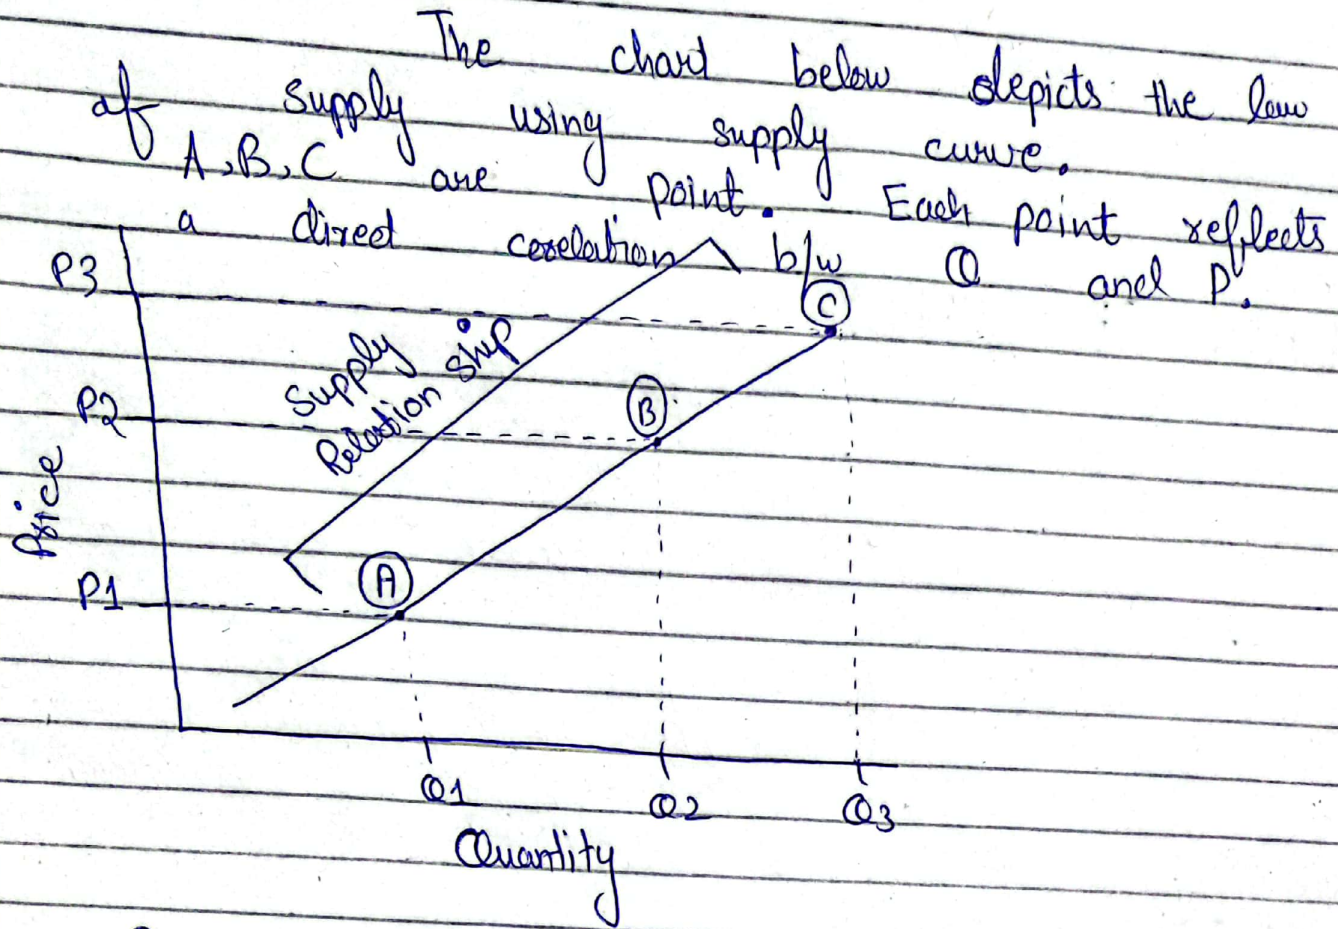 The chart below depicts the law
of supply using supply curve.
A, B, C are point. Each point reflects
a direct corelation b/w Q and P.
P3
C
Supply
Relation ship
P2
B
Price
A
P1
Q1 Q2 Q3
Quantity